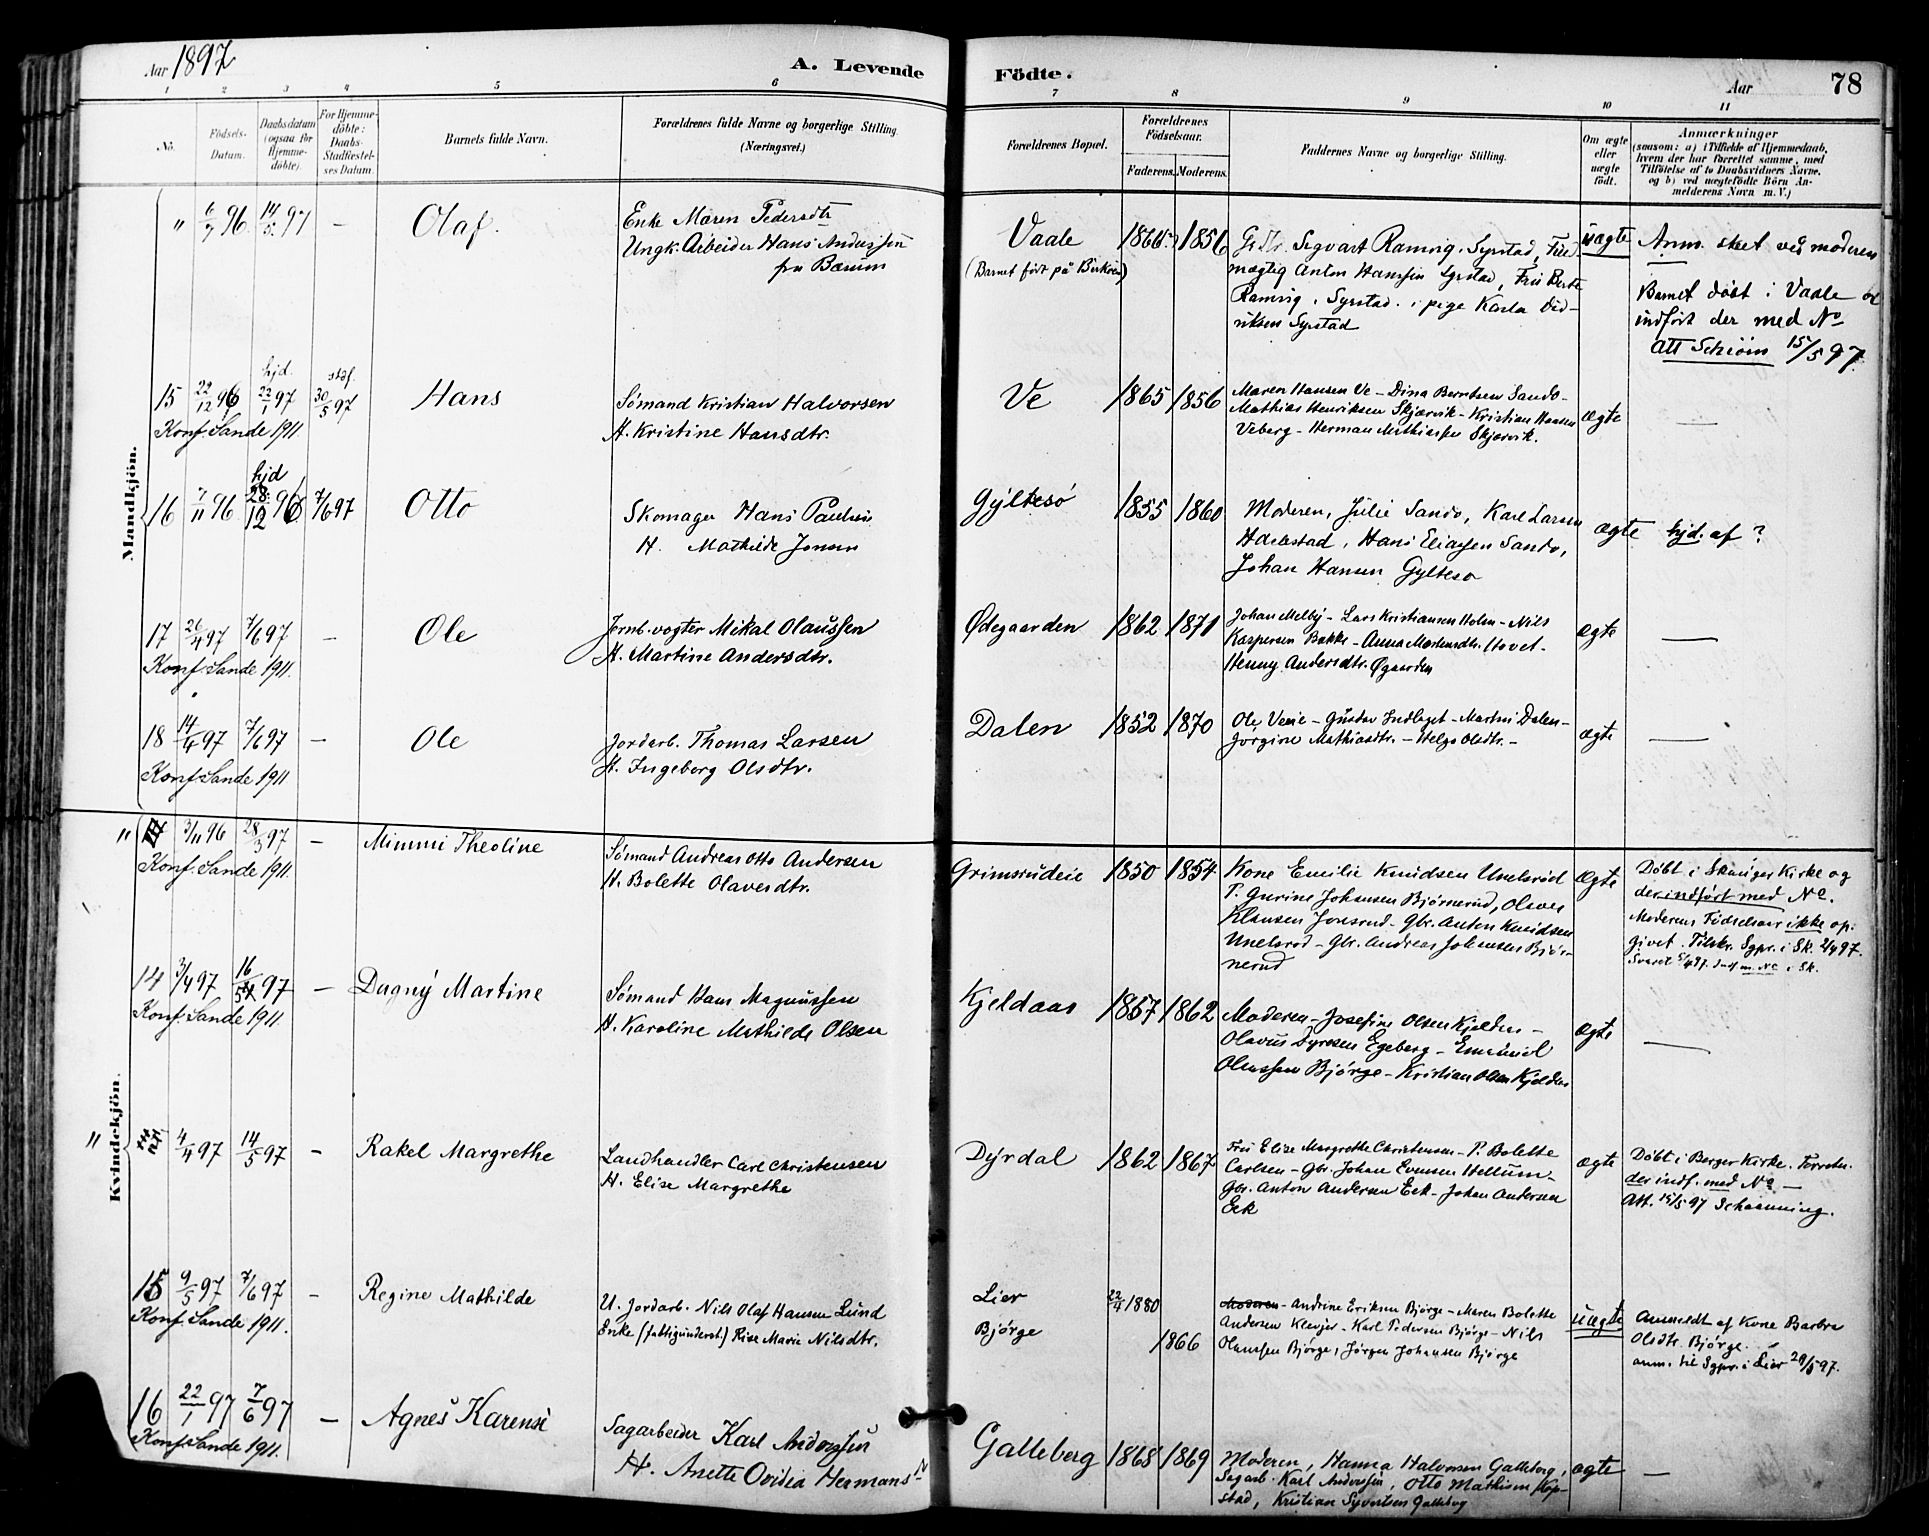 Aar 1897 A. Levende Födte. Aar 78
1 2 3 4 5 6 7 8 9 10 11
No. Födsels-Datum. Daabsdatum (ogsaa for Hjemme-döbte). For Hjemme-döbte: Daabs-Stadfæstel-ses Datum. Barnets fulde Navn. Forældrenes fulde Navne og borgerlige Stilling. (Næringsvei.) Forældrenes Bopæl. Forældrenes Födselsaar. Faderens. Moderens. Faddernes Navne og borgerlige Stilling. Om ægte eller uægte födt. Anmærkninger
(saasom: a) i Tilfælde af Hjemmedaab,
hvem der har forrettet samme, med
Tilföielse af to Daabsvidners Navne,
og b) ved uægtefödte Börn An-
melderens Navn m. V.)
Mandkjön.
" 6/7 96 14/5 97 – Olaf.
Enke Maren Pedersdtr
Ungk. Arbeider Hans Anderssen
fra Bærum
Vaale
(Barnet født på Birkeen)
1866 1856
Sigvart Ramvig, Syrstad,
mægtig Anton Hanssen Syrstad,
Ramvig, Syrstad. i pige Karla Did-
riksen Syrstad
uægte
Anm. skeet ved moderen
Barnet døbt i Vaale og
indført der med No
Att Schiøm 15/5 97.
15 22/12 96 hjd. 22/1 97 stdf. 30/5 97 Hans
Konf. Sande 1911.
Sømand Kristian Halvorsen
H. Kristine Hansdtr.
Ve 1865 1856
Maren Hansen Ve – Dina Berntsen Sande –
Mathias Henriksen Skjærvik – Kristian Hansen
Veberg – Herman Mathiassen Skjærvik.
ægte —
16 7/11 96 hjd 28/12 96 7/6 97 Otto
Skomager Hans Paulsen
H. Mathilde Jensen
Gyltesø 1855 1860
Moderen, Julie Sando, Karl Larsen
Haebstad, Hans Eliassen Sando,
Johan Hansen Gyltesø
ægte hjd. af ?
17 26/4 97 7/6 97 – Ole
Konf. Sande 1911.
Jernb. vogter Mikal Olaussen
H. Martine Andersdtr.
Ødegaarden 1862 1871
Johan Melby – Lars Kristiansen Holm – Nils
Kaspersen Bakke – Anna Mortensdtr. Hovet –
Henny Andersdtr. Øgaarden
ægte —
18 14/4 97 7/6 97 – Ole
Konf. Sande 1911
Jordarb. Thomas Larsen
H. Ingeborg Olsdtr.
Dalen 1852 1870
Ole Veme – Gustav Indlaget – Martin Dalen –
Jørgine Mathiasdtr. – Helga Olsdtr. –
ægte —
Kvindekjön.
" 3/11 96 28/3 97 – Mimmi Theoline
Konf. Sande 1911.
Sømand Andreas Otto Andersen
H. Bolette Olavesdtr.
Grimsrudeie 1850 1854
Kone Emilie Knudsen Unelsrød
P. Gurine Johansen Bjørnerud, Olaves
Klausen Joresrud – Gbr. Anton Knudsen
Unelsrod – Gbr. Andreas Johansen Bjør-
nerud
ægte
Døbt i Skauger Kirke og
der indført med No.
Moderens Fødselsaar ikke op-
givet. Tilskr. Sgpr. i Sk. 2/4 97.
Svaret 5/4 97. Indf m. No i Sk.
14 3/4 97 16/5 97 – Dagny Martine
Konf. Sande 1911.
Sømand Hans Magnussen
H. Karoline Mathilde Olsen
Kjeldaas 1857 1862
Moderen – Josefine Olsen Kjeldaas –
Olavus Dyresen Egeberg – Emanuel
Olaussen Bjørge – Kristian Olsen Kjeldaas
ægte —
" 4/4 97 14/5 97 – Rakel Margrethe
Landhandler Carl Christensen
H. Elise Margrethe
Dyrdal 1862 1867
Fru Elise Margrethe Christensen – P. Bolette
Carlsen – Gbr. Johan Evensen Hellum –
Gbr. Anton Andersen Eek – Johan Andersen
Eek
ægte
Døbt i Berger Kirke.
der indf. med No —
Att. 15/5 97 Schanning.
15 9/5 97 7/6 97 – Regine Mathilde
Konf. Sande 1911.
U. Jordarb. Nils Olaf Hansen Lund
Enke (fattigunderst.) Rise Marie Nilsdtr.
Lier 22/4 1880
Bjørge 1866
Moderen – Andrine Eriksen Bjørge – Maren Bolette
Andersen Klevjer – Karl Pedersen Bjørge – Nils
Olaussen Bjørge, Jørgen Johansen Bjørge
uægte
Anmeldt af Kone Barbra
Olsdtr. Bjørge.
anm. til Sgpr. i Lier 29/5 97.
16 22/1 97 7/6 97 – Agnes Karense
Konf. Sande 1911.
Sagarbeider Karl Anderssen
H. Anette Ovidia Hermans
Galleberg 1868 1869
Moderen, Hanna Halvorsen Galleberg,
Sagarb. Karl Anderssen, Otto Mathisen Kop-
stad, Kristian Syvertsen Galleberg
ægte —